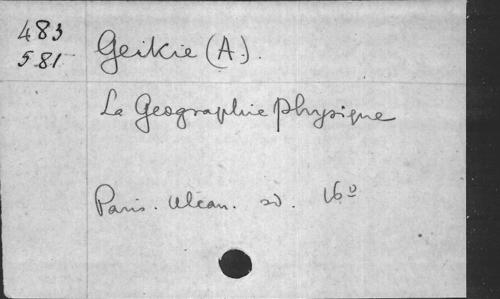 483
581
Geikie (A.).
La Geographie physique
Paris. Alcan. sd. 16°